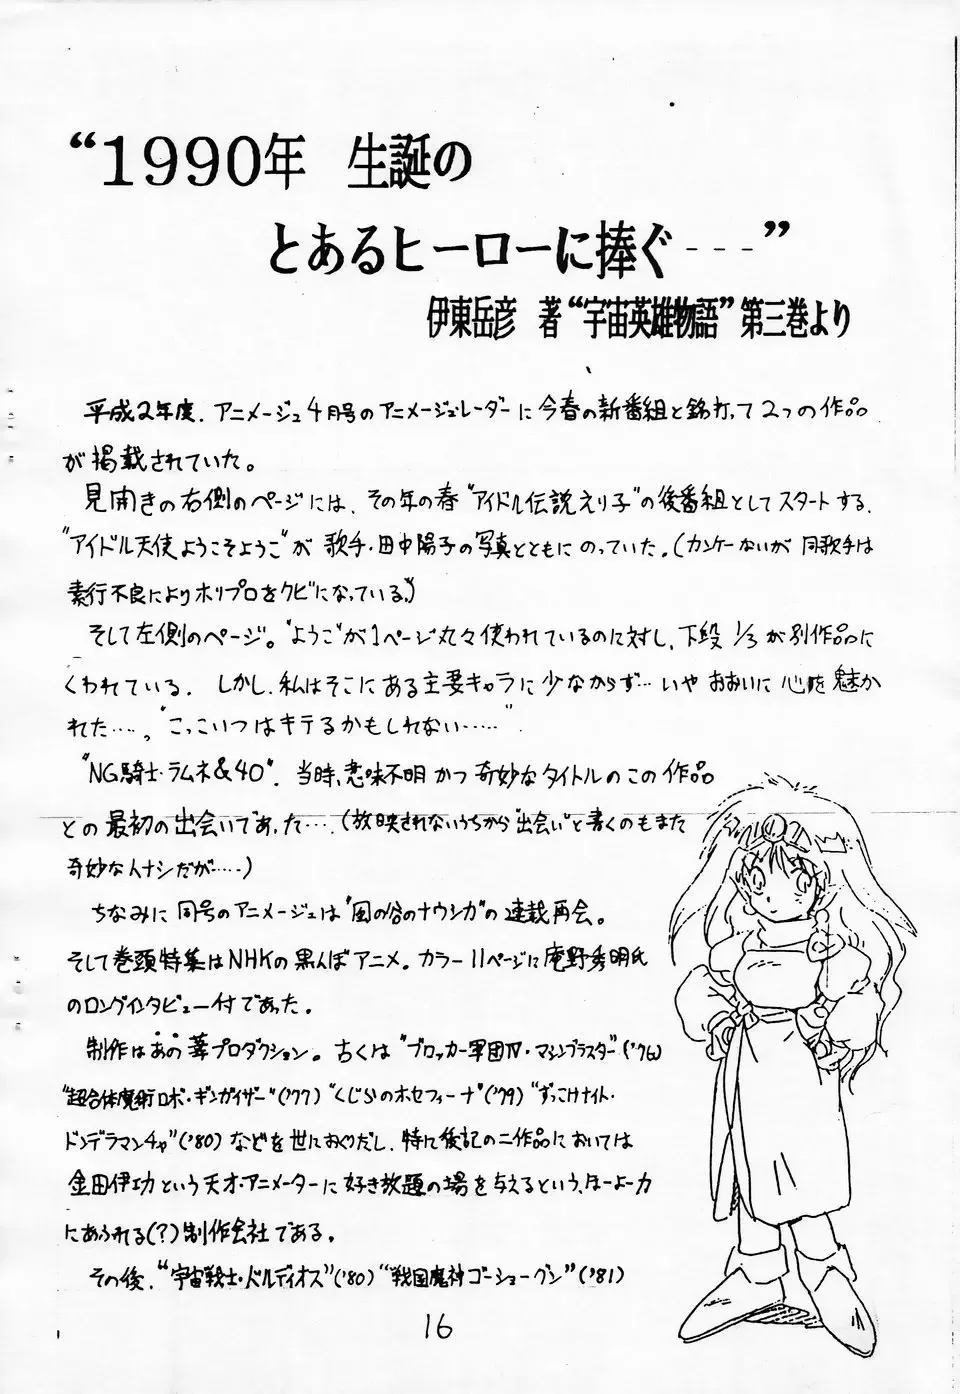 “1990年 生誕の
とあるヒーローに捧ぐ---”
伊東岳彦 著“宇宙英雄物語”第三巻より
平成2年度.アニメージュ4月号のアニメージュレーダーに今春の新番組と銘打って2つの作品
が掲載されていた。
見開きの右側のページには、その年の春“アイドル伝説えり子”の後番組としてスタートする.
“アイドル天使ようこそようこ”が歌手・田中陽子の写真とともにのっていた。(カンケーないが同歌手は
素行不良によりホリプロをクビになっている。)
そして左側のページ。“ようこ”が1ページ丸々使われているのに対し、下段1/3が別作品に
くわれている. しかし、私はそこにある主要キャラに少なからず…いやおおいに心を魅か
れた……。“こっこいつはキテるかもしれない……”
“NG騎士・ラムネ&40”. 当時、意味不明かつ奇妙なタイトルのこの作品
との最初の出会いであった….(放映されないうちから“出会い”と書くのもまた
奇妙なハナシだが……)
ちなみに同号のアニメージュは“風の谷のナウシカ”の連載再会。
そして巻頭特集はNHKの黒んぼアニメ。カラー11ページに庵野秀明氏
のロングインタビュー付であった。
制作はあの葦プロダクション。古くは“ブロッカー軍団Ⅳ・マシンブラスター”('76)
“超合体魔術ロボ・ギンガイザー”('77)“くじらのホセフィーナ”('79)“ずっこけナイト・
ドンデラマンチャ”('80)などを世におくりだし、特に後記の二作品においては
金田伊功という天才・アニメーターに好き放題の場を与えるという、ほーよー力
にあふれる(?)制作会社である。
その後、“宇宙戦士・バルディオス”('80)“戦国魔神ゴーショーグン”('81)
16